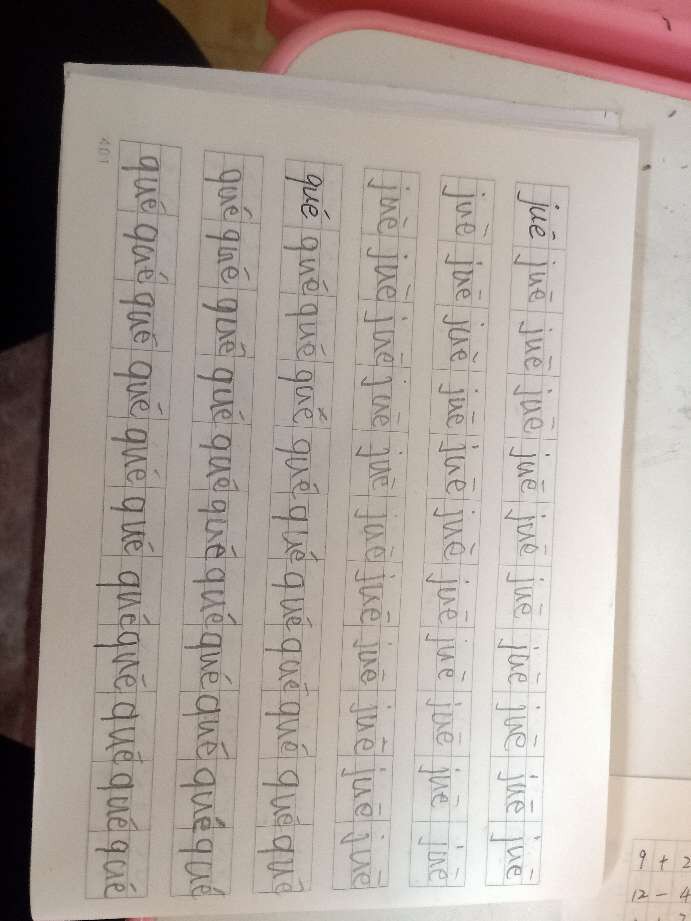 juē juē juē juē juē juē juē juē juē juē juē
juē juē juē juē juē juē juē juē juē juē juē
juē juē juē juē juē juē juē juē juē juē juē
qué qué qué qué qué qué qué qué qué qué qué
qué qué qué qué qué qué qué qué qué qué qué
qué qué qué qué qué qué qué qué qué qué qué
401
9 + 2
12 - 4